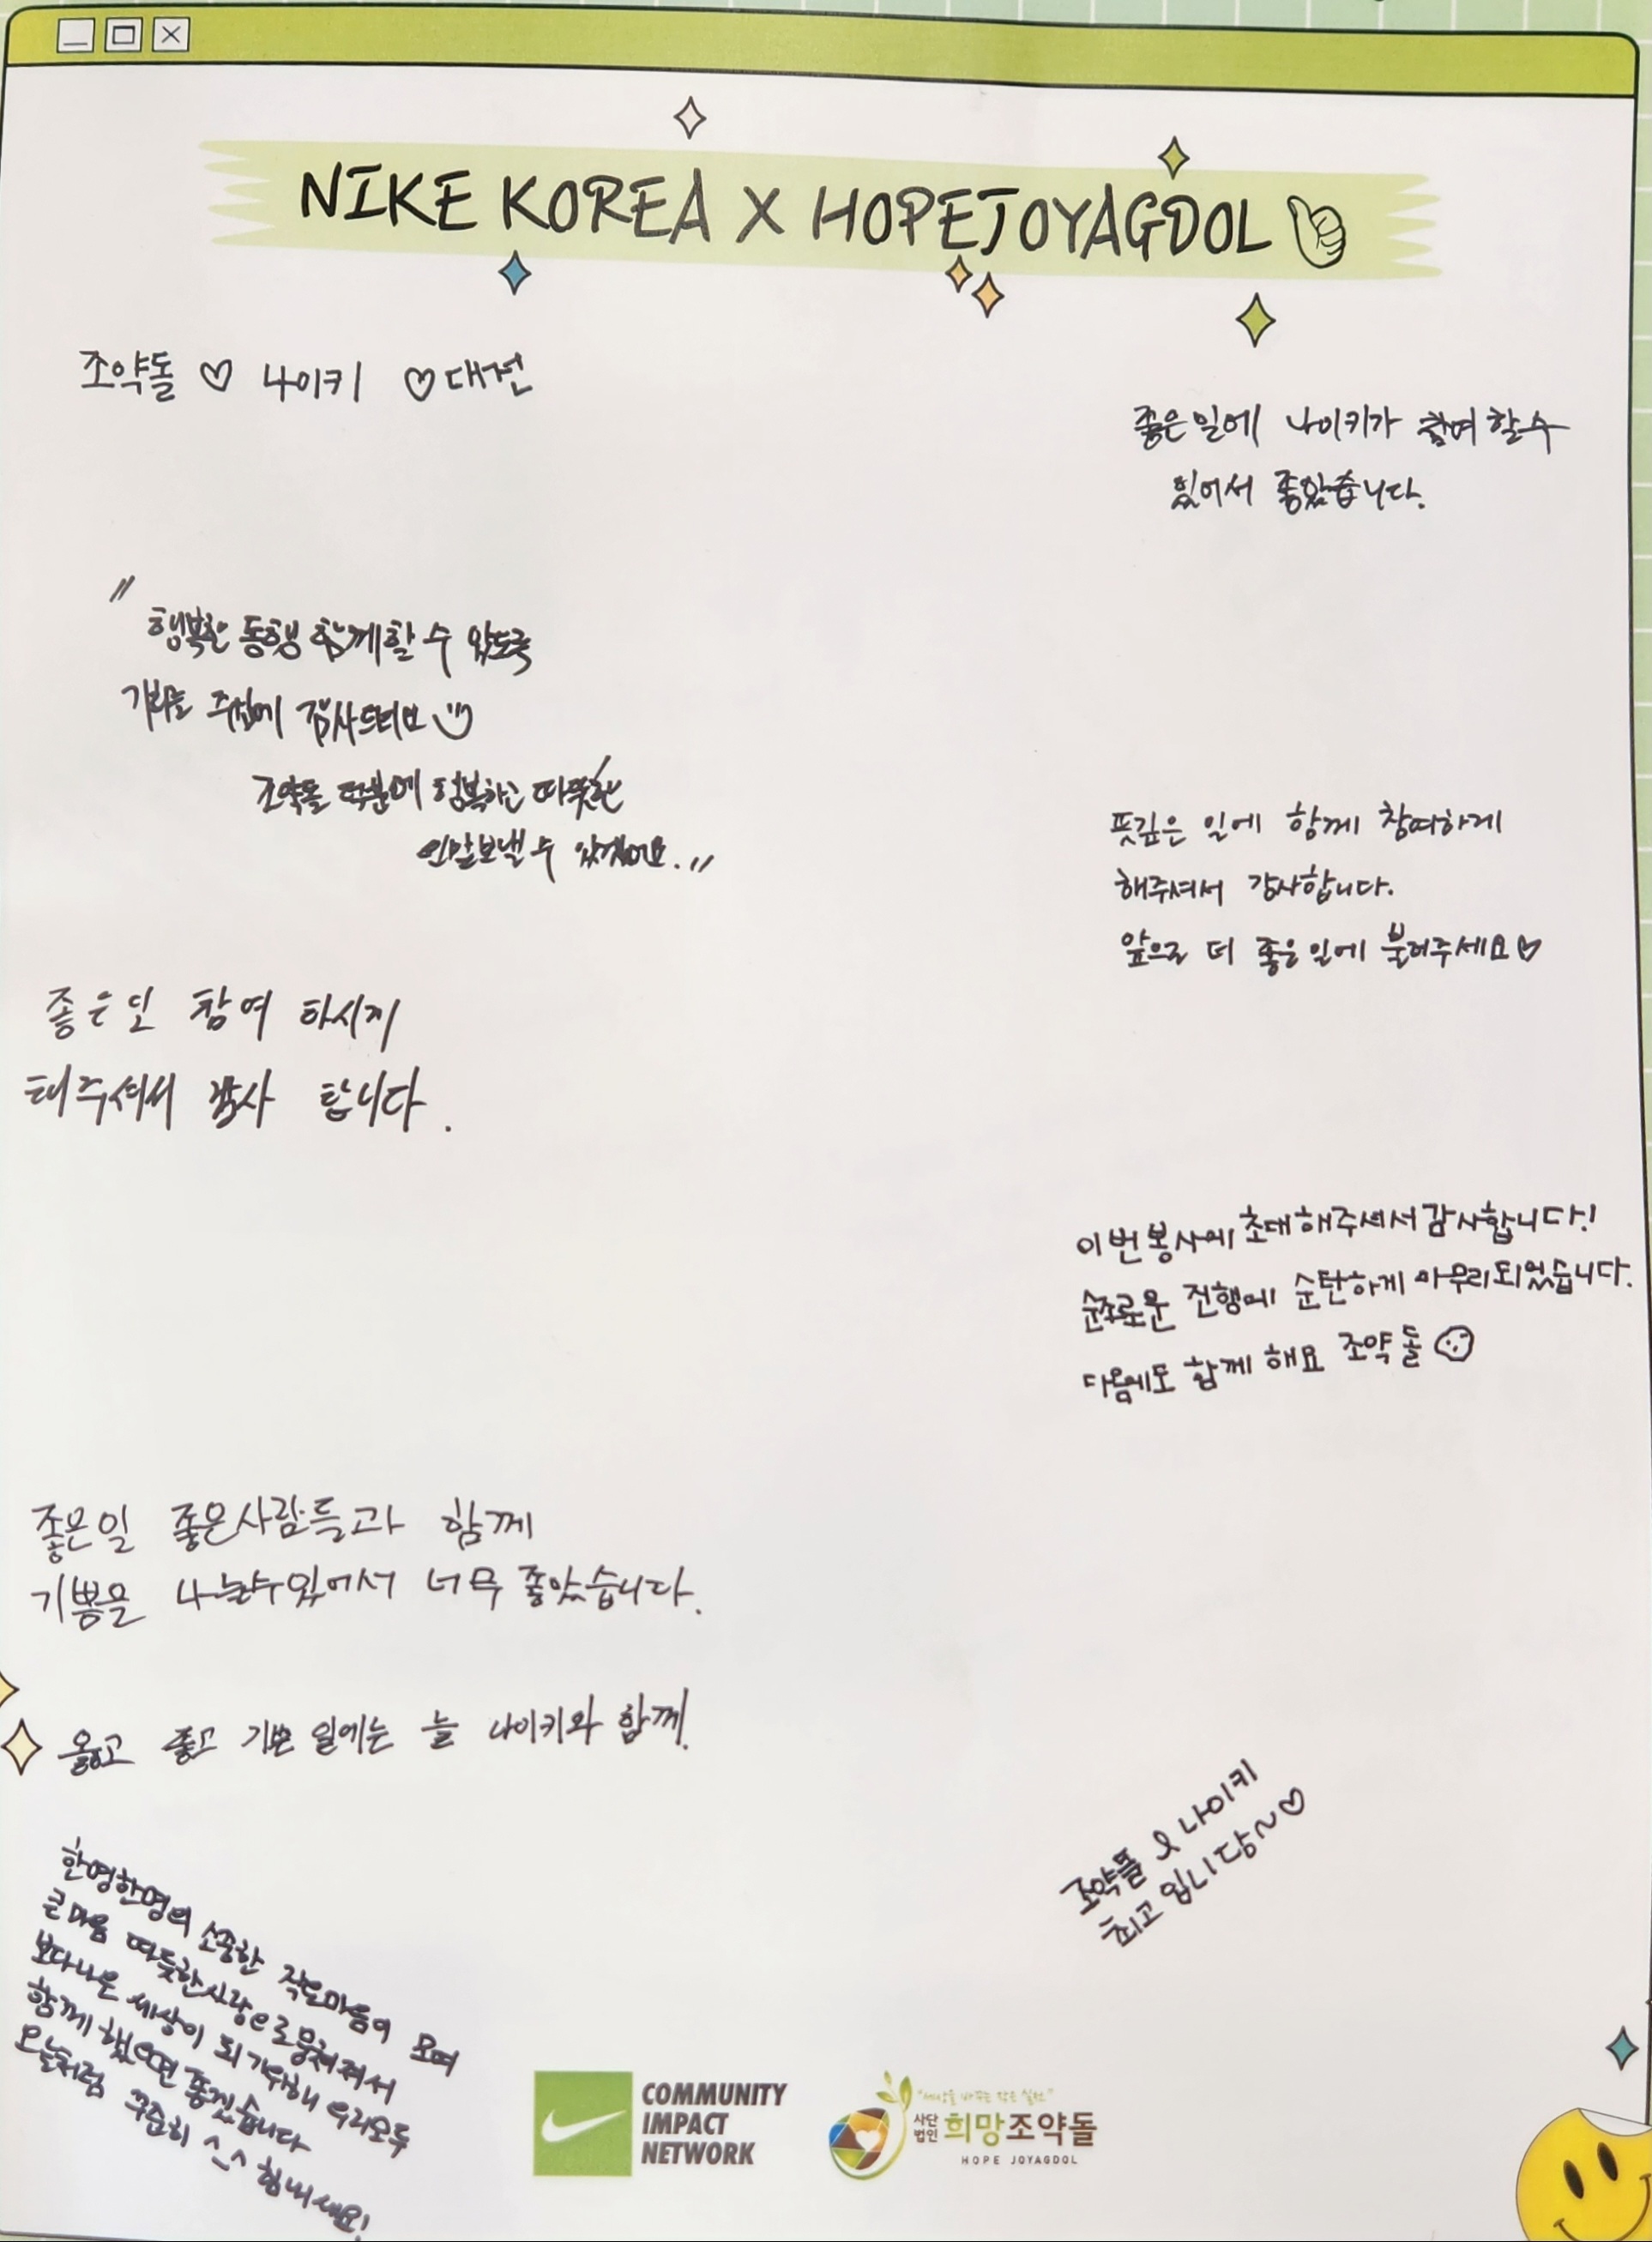 NIKE KOREA X HOPEJOYAGDOL
조약돌 ♡ 나이키 ♡ 대전
좋은일에 나이키가 참여할수
있어서 좋았습니다.
"행복한 동행 함께할 수 있도록
기회를 주심에 감사드려요
조약돌 덕분에 행복하고 따뜻한
연말보낼 수 있겠어요."
뜻깊은 일에 함께 참여하게
해주셔서 감사합니다.
앞으로 더 좋은일에 불려주세요♡
좋은일 참여 하시게
해주셔서 감사 합니다.
이번봉사에 초대해주셔서감사합니다!
순조로운 진행에 순탄하게 마무리되었습니다.
다음에도 함께 해요 조약돌
좋은일 좋은사람들과 함께
기쁨을 나눌수있어서 너무 좋았습니다.
옳고 좋고 기쁜 일에는 늘 나이키와 함께.
조약돌 & 나이키
최고입니당~♡
한명한명의 소중한 작은마음이 모여
큰마음 따듯한사랑으로뭉쳐져서
보다나은 세상이 되기위해 우리모두
함께했으면 좋겠습니다
오늘처럼 꾸준히 ^_^ 힘내세요!
COMMUNITY
IMPACT
NETWORK
"세상을 바꾸는 작은 실천"
사단법인 희망조약돌
HOPE JOYAGDOL